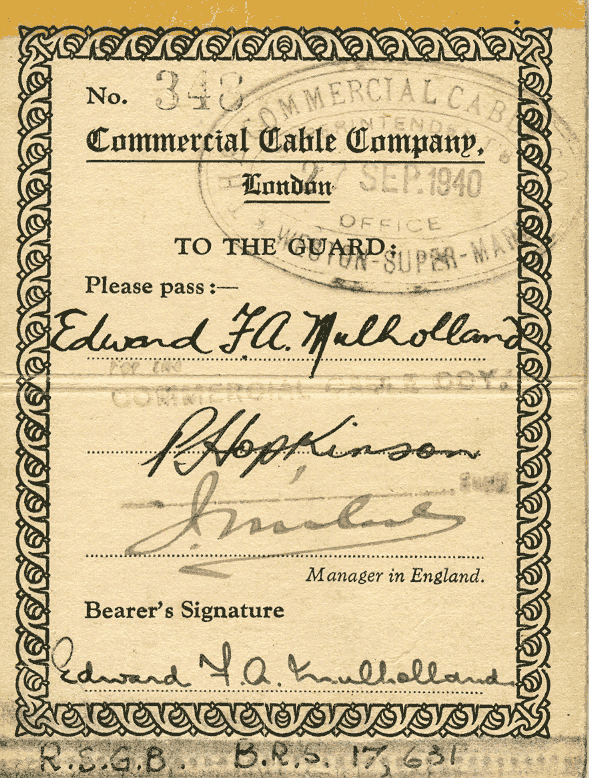 No. 343
Commercial Cable Company,
London
THE COMMERCIAL CABLE CO.
SUPERINTENDENT'S
27 SEP. 1940
OFFICE
WESTON-SUPER-MARE
TO THE GUARD:
Please pass:—
Edward F.A. Mulholland
FOR THE
COMMERCIAL CABLE COY.
P. Hopkinson
Manager in England.
Bearer's Signature
Edward F.A. Mulholland
R.S.G.B. B.R.S. 17,631